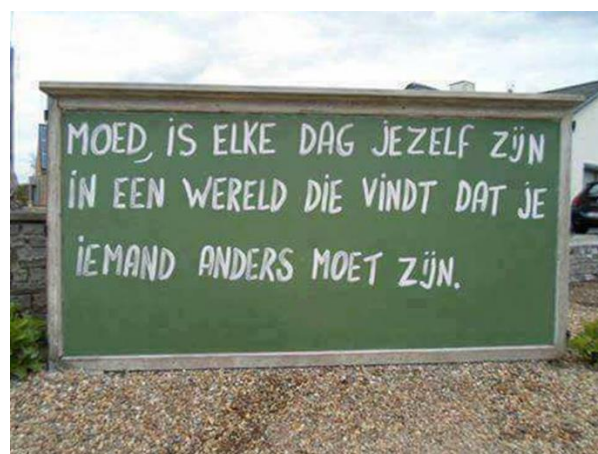 MOED, IS ELKE DAG JEZELF ZIJN
IN EEN WERELD DIE VINDT DAT JE
IEMAND ANDERS MOET ZIJN.